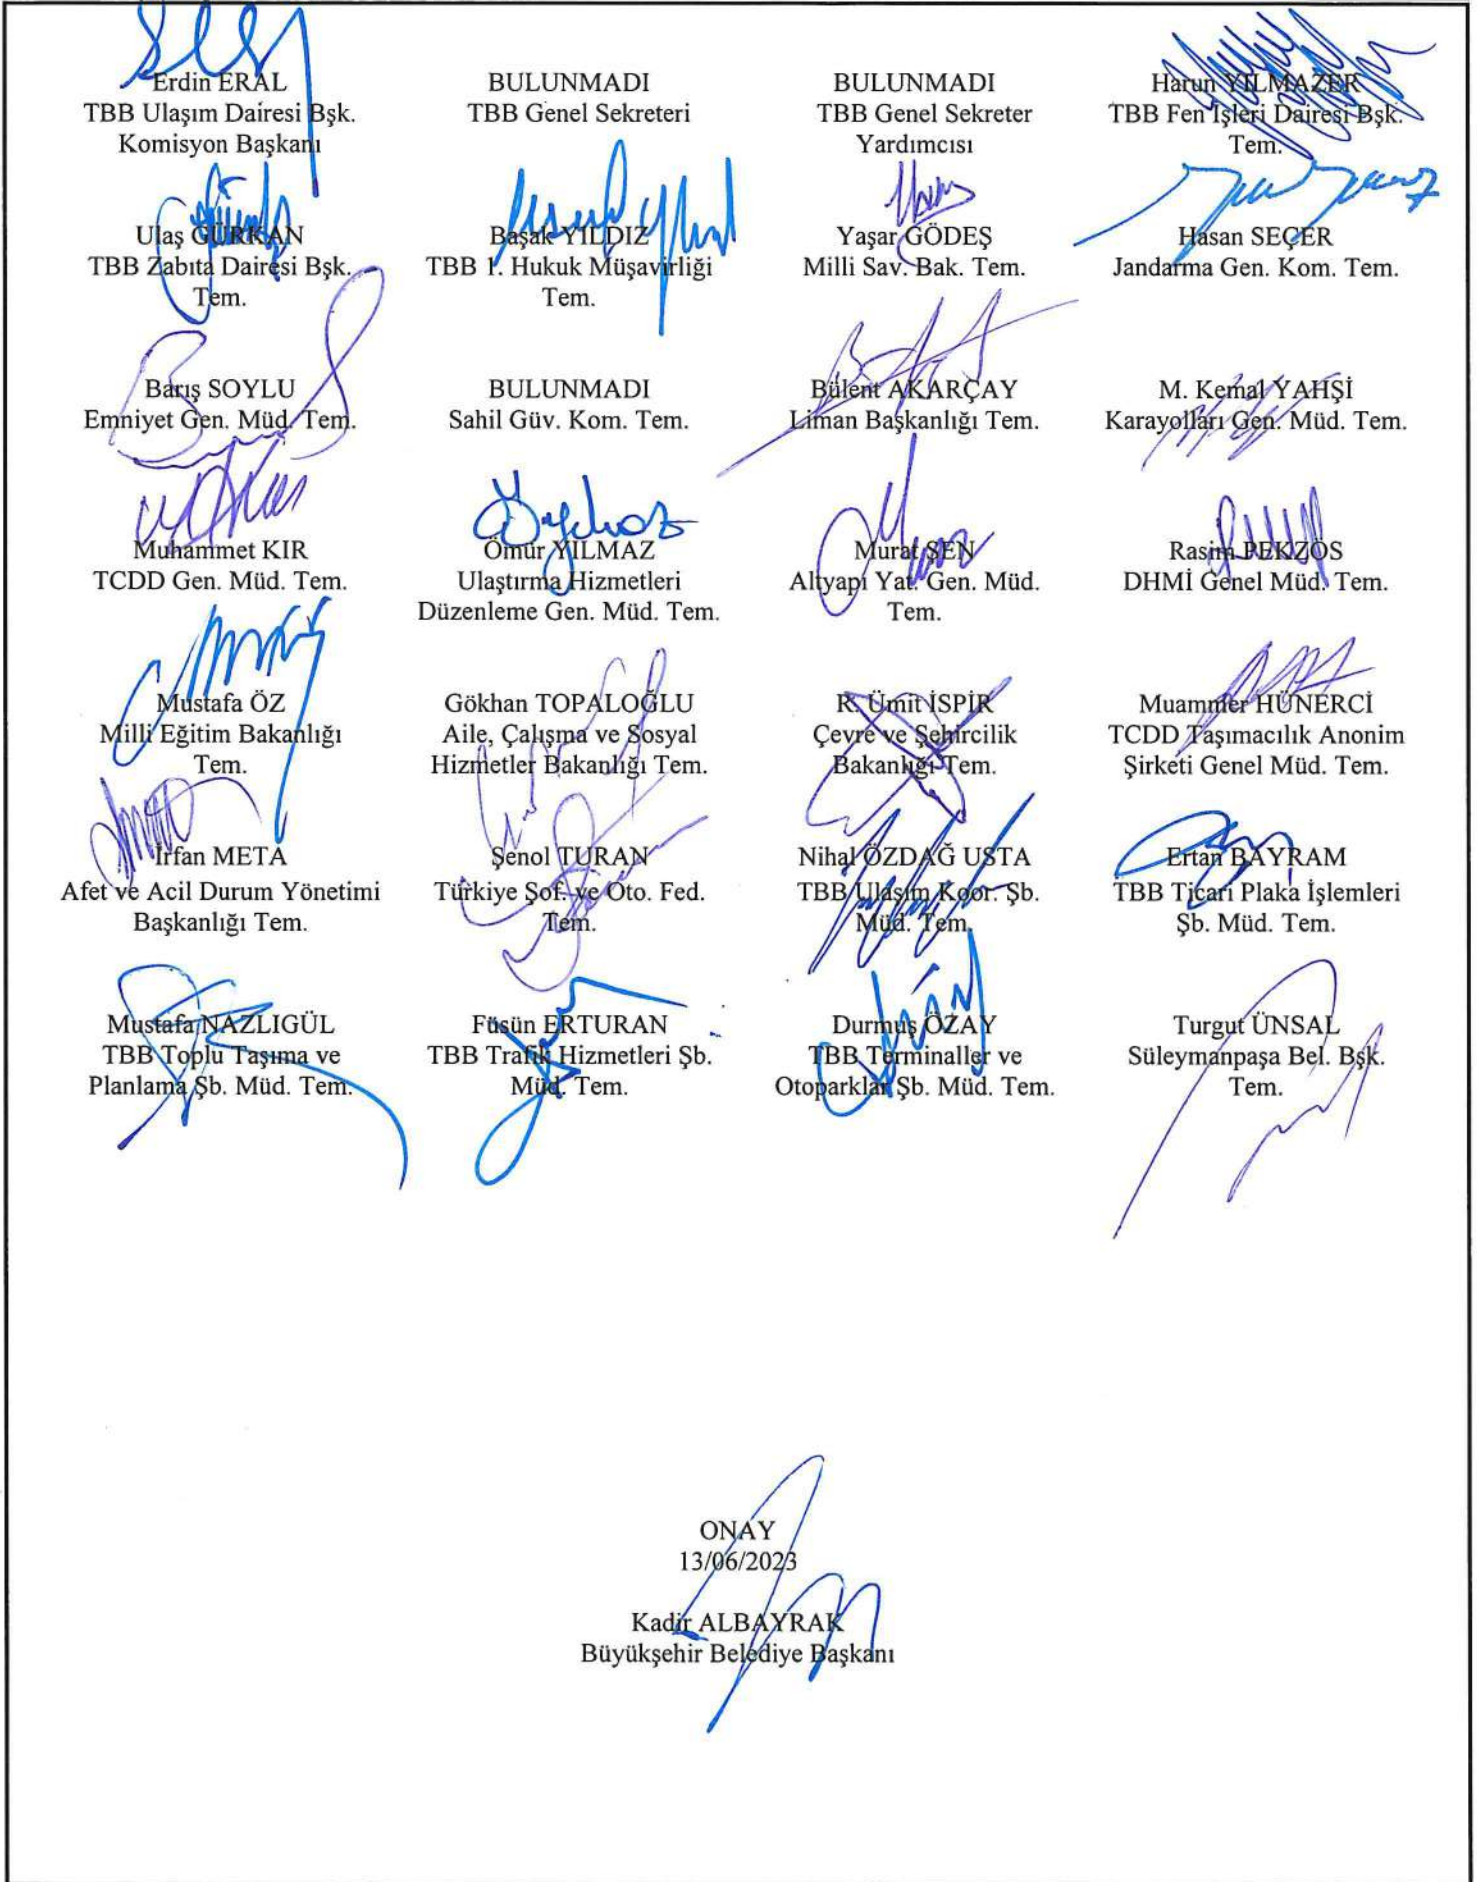 Erdin ERAL
TBB Ulaşım Dairesi Bşk.
Komisyon Başkanı
BULUNMADI
TBB Genel Sekreteri
BULUNMADI
TBB Genel Sekreter
Yardımcısı
Harun YILMAZER
TBB Fen İşleri Dairesi Bşk.
Tem.
Ulaş GÜRKAN
TBB Zabıta Dairesi Bşk.
Tem.
Başak YILDIZ
TBB 1. Hukuk Müşavirliği
Tem.
Yaşar GÖDEŞ
Milli Sav. Bak. Tem.
Hasan SEÇER
Jandarma Gen. Kom. Tem.
Barış SOYLU
Emniyet Gen. Müd. Tem.
BULUNMADI
Sahil Güv. Kom. Tem.
Bülent AKARÇAY
Liman Başkanlığı Tem.
M. Kemal YAHŞİ
Karayolları Gen. Müd. Tem.
Muhammet KIR
TCDD Gen. Müd. Tem.
Ömür YILMAZ
Ulaştırma Hizmetleri
Düzenleme Gen. Müd. Tem.
Murat ŞEN
Altyapı Yat. Gen. Müd.
Tem.
Rasim PEKZÖS
DHMİ Genel Müd. Tem.
Mustafa ÖZ
Milli Eğitim Bakanlığı
Tem.
Gökhan TOPALOĞLU
Aile, Çalışma ve Sosyal
Hizmetler Bakanlığı Tem.
R. Ümit İSPİR
Çevre ve Şehircilik
Bakanlığı Tem.
Muammer HÜNERCİ
TCDD Taşımacılık Anonim
Şirketi Genel Müd. Tem.
İrfan META
Afet ve Acil Durum Yönetimi
Başkanlığı Tem.
Şenol TURAN
Türkiye Şof. ve Oto. Fed.
Tem.
Nihal ÖZDAĞ USTA
TBB Ulaşım Koor. Şb.
Müd. Tem.
Ertan BAYRAM
TBB Ticari Plaka İşlemleri
Şb. Müd. Tem.
Mustafa NAZLIGÜL
TBB Toplu Taşıma ve
Planlama Şb. Müd. Tem.
Füsün ERTURAN
TBB Trafik Hizmetleri Şb.
Müd. Tem.
Durmuş ÖZAY
TBB Terminaller ve
Otoparklar Şb. Müd. Tem.
Turgut ÜNSAL
Süleymanpaşa Bel. Bşk.
Tem.
ONAY
13/06/2023
Kadir ALBAYRAK
Büyükşehir Belediye Başkanı